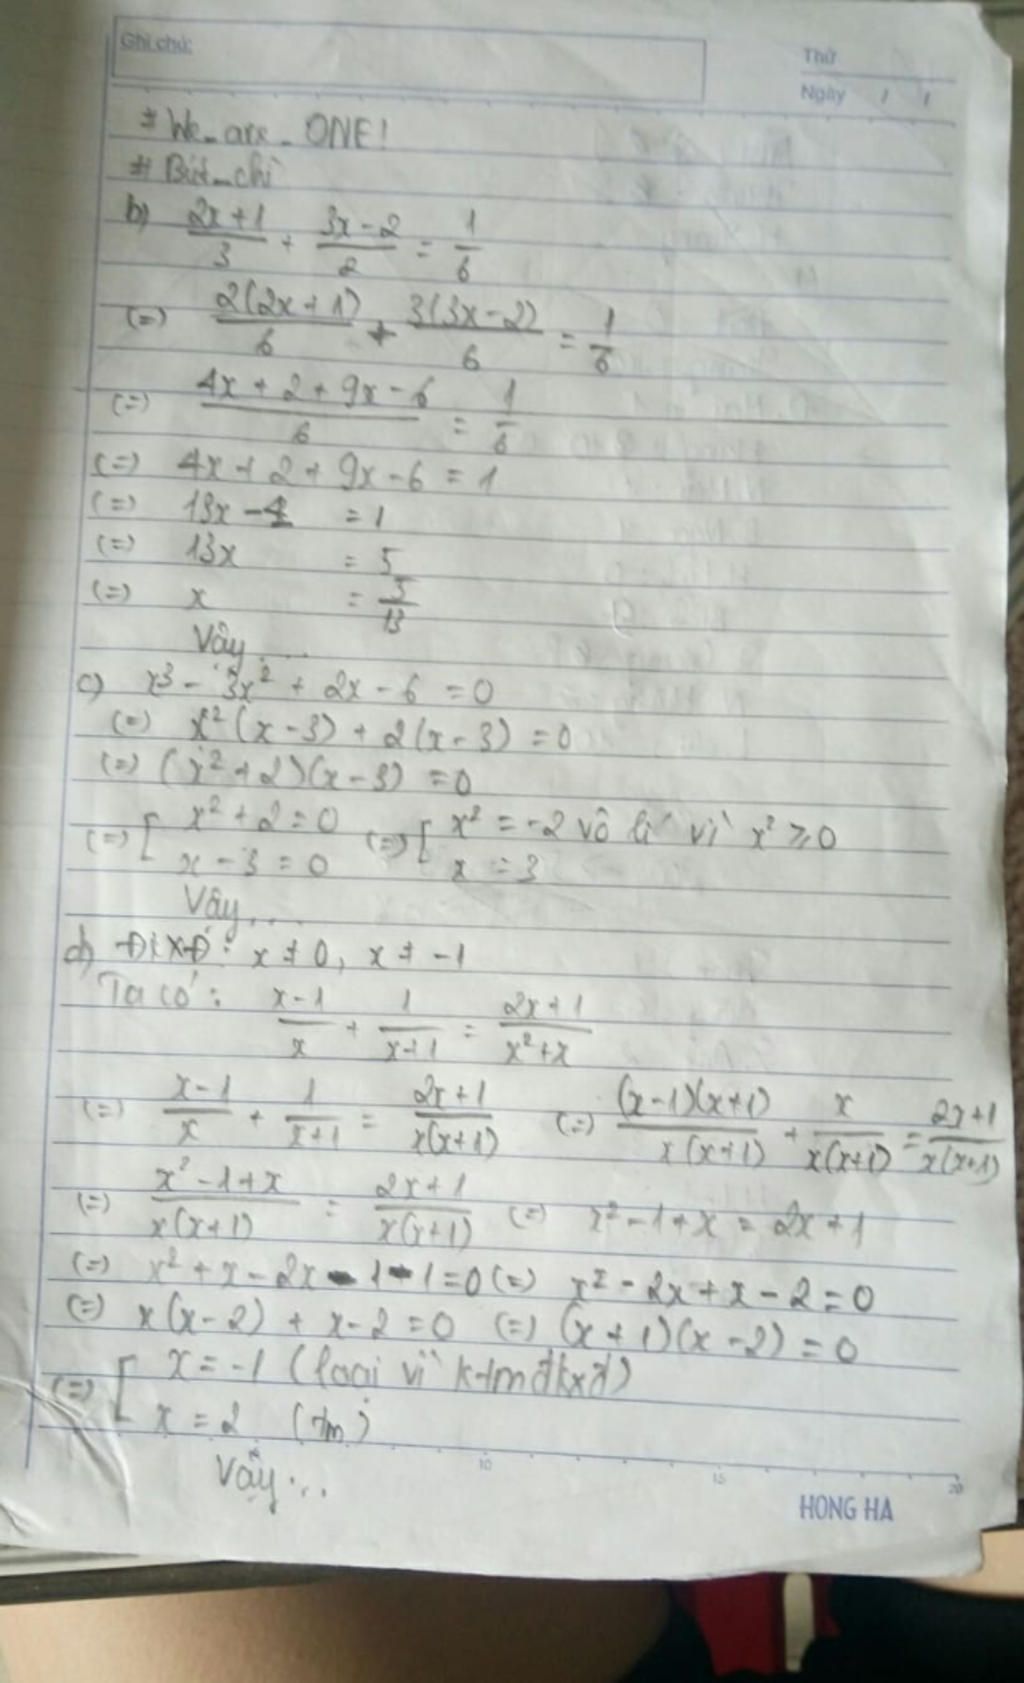 Ghi chú:
Thứ
Ngày / /
# We_are_ONE!
# Bút_chì
b) (2x+1)/3 + (3x-2)/2 = 1/6
(=) 2(2x+1)/6 + 3(3x-2)/6 = 1/6
(=) (4x+2+9x-6)/6 = 1/6
(=) 4x+2+9x-6 = 1
(=) 13x-4 = 1
(=) 13x = 5
(=) x = 5/13
Vậy ...
c) x³ - 3x² + 2x - 6 = 0
(=) x²(x-3) + 2(x-3) = 0
(=) (x²+2)(x-3) = 0
(=) [ x²+2=0 (=) [ x² = -2 vô lí vì x² ≥ 0
x-3=0 x = 3
Vậy ...
d) ĐKXĐ: x ≠ 0, x ≠ -1
Ta có: (x-1)/x + 1/(x+1) = (2x+1)/(x²+x)
(=) (x-1)/x + 1/(x+1) = (2x+1)/(x(x+1)) (=) (x-1)(x+1)/(x(x+1)) + x/(x(x+1)) = (2x+1)/(x(x+1))
(=) (x²-1+x)/(x(x+1)) = (2x+1)/(x(x+1)) (=) x²-1+x = 2x+1
(=) x²+x-2x-1-1=0 (=) x²-2x+x-2=0
(=) x(x-2) + x-2 = 0 (=) (x+1)(x-2) = 0
(=) [ x = -1 (loại vì ktmđkxđ)
x = 2 (tm)
Vậy ...
10 15 20
HONG HA